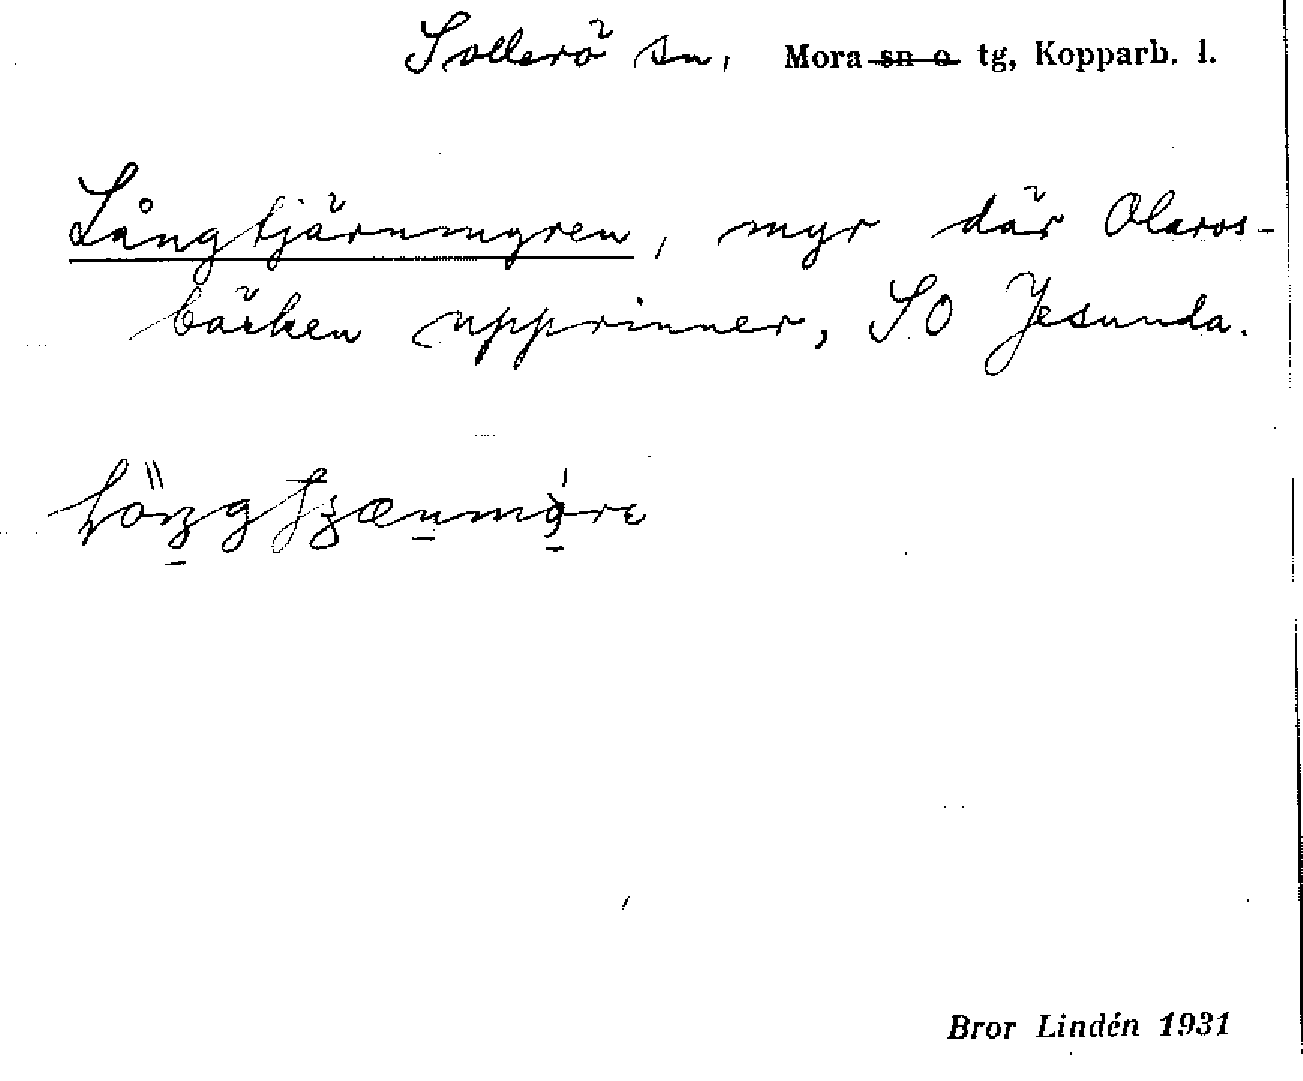 Sollerö sn, Mora sn o. tg, Kopparb. l.
Långtjärnmyren, myr där Olaros-
bäcken upprinner, SO Jesunda.
Bror Lindén 1931